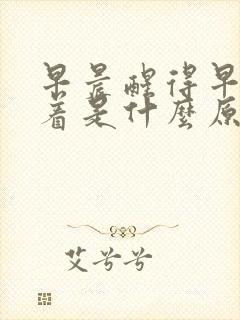 早晨醒得早
着是什麼原
艾兮兮